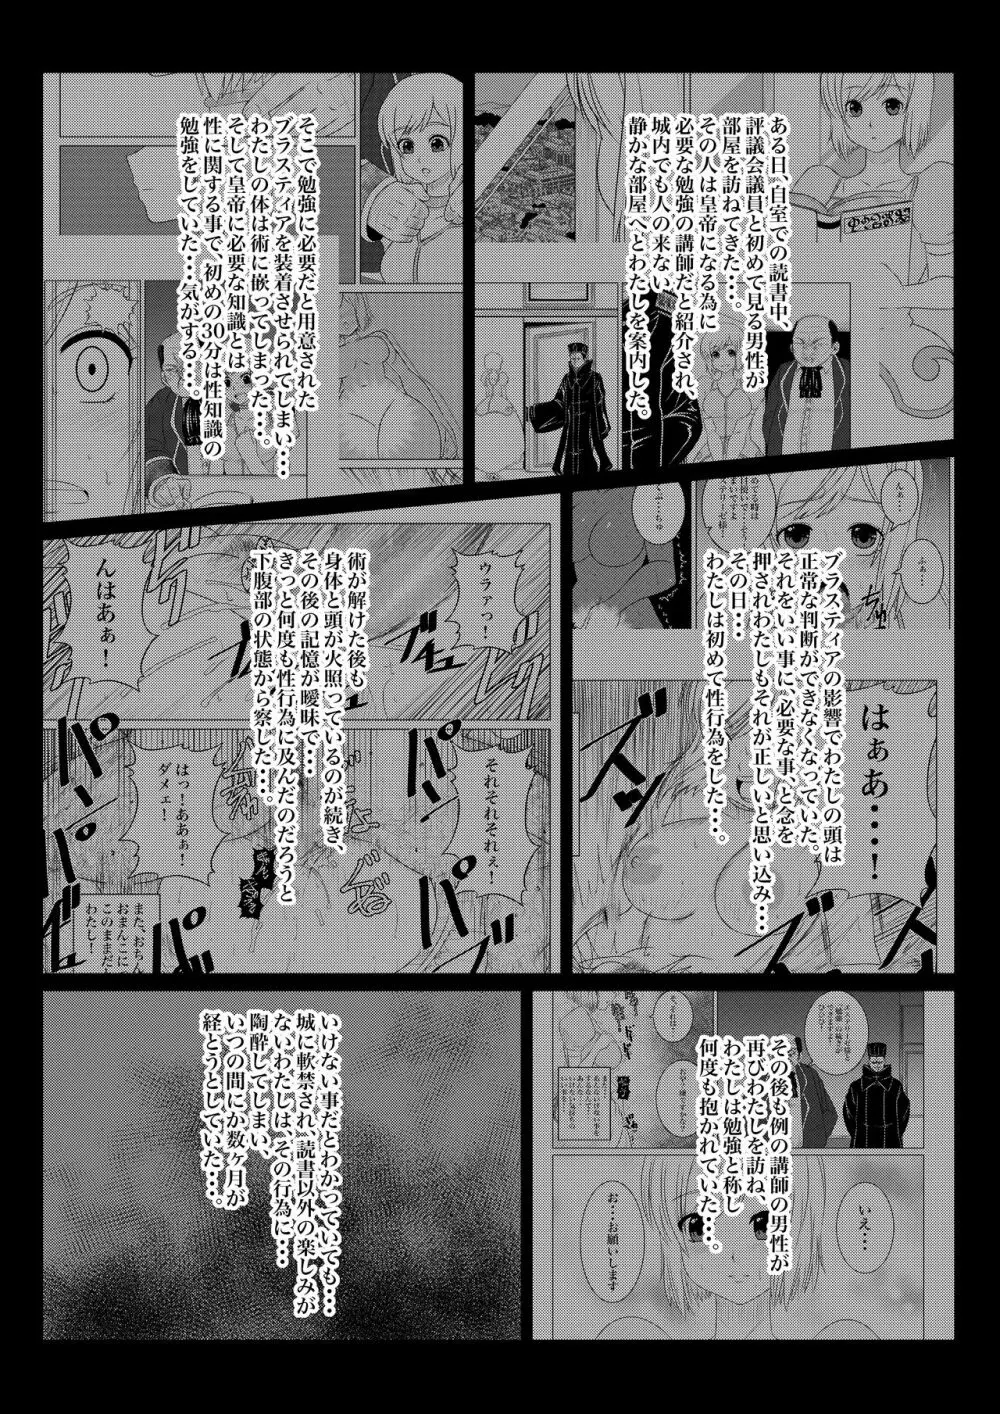 ある日、自室での読書中、
評議会議員と初めて見る男性が
部屋を訪ねてきた・・・。
その人は皇帝になる為に
必要な勉強の講師だと紹介され、
城内でも人の来ない
静かな部屋へとわたしを案内した。
そこで勉強に必要だと用意された
ブラスティアを装着させられてしまい・・・
わたしの体は術に嵌ってしまった・・・。
そして皇帝に必要な知識とは
性に関する事で、初めの30分は性知識の
勉強をしていた・・・気がする・・・。
んぁ・・・
ふぁ・・・
ブラスティアの影響でわたしの頭は
正常な判断ができなくなっていた。
それをいい事に必要な事、と念を
押されわたしもそれが正しいと思い込み・・・
その日・・・
わたしは初めて性行為をした・・・。
はぁあ・・・！
ウラァっ！
んはあぁ！
術が解けた後も
身体と頭が火照っているのが続き、
その後の記憶が曖昧で・・・
きっと何度も性行為に及んだのだろうと
下腹部の状態から察した・・・。
それそれそれぇ！
はっ！ああぁ！
ダメェ！
また、おちん
おまんこに
このままだ
わたし！
その後も例の講師の男性が
再びわたしを訪ね、
わたしは勉強と称し
何度も抱かれていた・・・。
いえ・・・
お・・・お願いします
いけない事だとわかっていても・・・
城に軟禁され、読書以外の楽しみが
ないわたしは、その行為に・・・
陶酔してしまい、
いつの間にか数ヶ月が
経とうとしていた・・・。